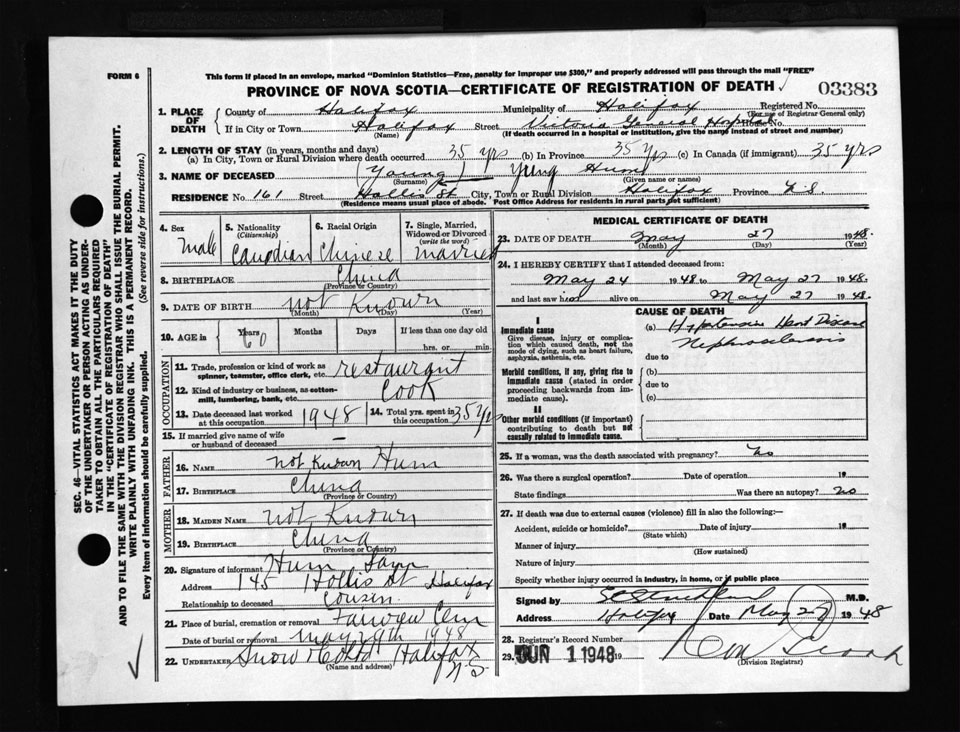 FORM 6
This form if placed in an envelope, marked "Dominion Statistics—Free, penalty for improper use $300," and properly addressed will pass through the mail "FREE"
PROVINCE OF NOVA SCOTIA—CERTIFICATE OF REGISTRATION OF DEATH
03383
1. PLACE OF DEATH
County of Halifax Municipality of Halifax Registered No.
(For use of Registrar General only)
If in City or Town Halifax Street Victoria General Hospital House No.
(Name) (If death occurred in a hospital or institution, give the name instead of street and number)
2. LENGTH OF STAY (in years, months and days)
(a) In City, Town or Rural Division where death occurred 35 yrs (b) In Province 35 yrs (c) In Canada (if immigrant) 35 yrs
3. NAME OF DECEASED (Young) Young Hum
(Surname) (Given name or names)
RESIDENCE No 161 Street Hollis St City, Town or Rural Division Halifax Province N.S.
(Residence means usual place of abode. Post Office Address for residents in rural parts not sufficient)
4. Sex
male
5. Nationality
(Citizenship)
Canadian
6. Racial Origin
Chinese
7. Single, Married, Widowed or Divorced
(write the word)
married
8. BIRTHPLACE China
(Province or Country)
9. DATE OF BIRTH not Known
(Month) (Day) (Year)
10. AGE in
Years Months Days If less than one day old
60 hrs. or min.
OCCUPATION
11. Trade, profession or kind of work as spinner, teamster, office clerk, etc. restaurant
12. Kind of industry or business, as cotton-mill, lumbering, bank, etc. Cook
13. Date deceased last worked at this occupation 1948
14. Total yrs. spent in this occupation 35 yrs
15. If married give name of wife or husband of deceased —
FATHER
16. NAME not Known Hum
17. BIRTHPLACE China
(Province or Country)
MOTHER
18. MAIDEN NAME not Known
19. BIRTHPLACE China
(Province or Country)
20. Signature of informant Hum
Address 145 Hollis St Halifax
Relationship to deceased Cousin
21. Place of burial, cremation or removal Fairview Cem
Date of burial or removal may 29th 1948
22. UNDERTAKER Snow & Co Ltd Halifax N.S.
(Name and address)
MEDICAL CERTIFICATE OF DEATH
23. DATE OF DEATH May 27 1948.
(Month) (Day) (Year)
24. I HEREBY CERTIFY that I attended deceased from:
May 24 1948 to May 27 1948.
and last saw him alive on May 27 1948.
CAUSE OF DEATH
I
Immediate cause
Give disease, injury or complication which caused death, not the mode of dying, such as heart failure, asphyxia, asthenia, etc.
(a) Hypertensive Heart Disease
Nephrosclerosis
due to
Morbid conditions, if any, giving rise to immediate cause (stated in order proceeding backwards from immediate cause).
(b)
due to
(c)
II
Other morbid conditions (if important) contributing to death but not causally related to immediate cause.
25. If a woman, was the death associated with pregnancy? No
26. Was there a surgical operation? Date of operation 19
State findings Was there an autopsy? No
27. If death was due to external causes (violence) fill in also the following:—
Accident, suicide or homicide? Date of injury 19
(State which)
Manner of injury
(How sustained)
Nature of injury
Specify whether injury occurred in industry, in home, or in public place
Signed by M.D.
Address Halifax Date May 27 1948
28. Registrar's Record Number
29. JUN 1 1948 19
(Division Registrar)
SEC. 46—VITAL STATISTICS ACT MAKES IT THE DUTY
OF THE UNDERTAKER OR PERSON ACTING AS UNDER-
TAKER TO OBTAIN ALL THE PARTICULARS REQUIRED
IN THE "CERTIFICATE OF REGISTRATION OF DEATH"
AND TO FILE THE SAME WITH THE DIVISION REGISTRAR WHO SHALL ISSUE THE BURIAL PERMIT.
WRITE PLAINLY WITH UNFADING INK. THIS IS A PERMANENT RECORD.
Every item of information should be carefully supplied. (See reverse side for instructions.)